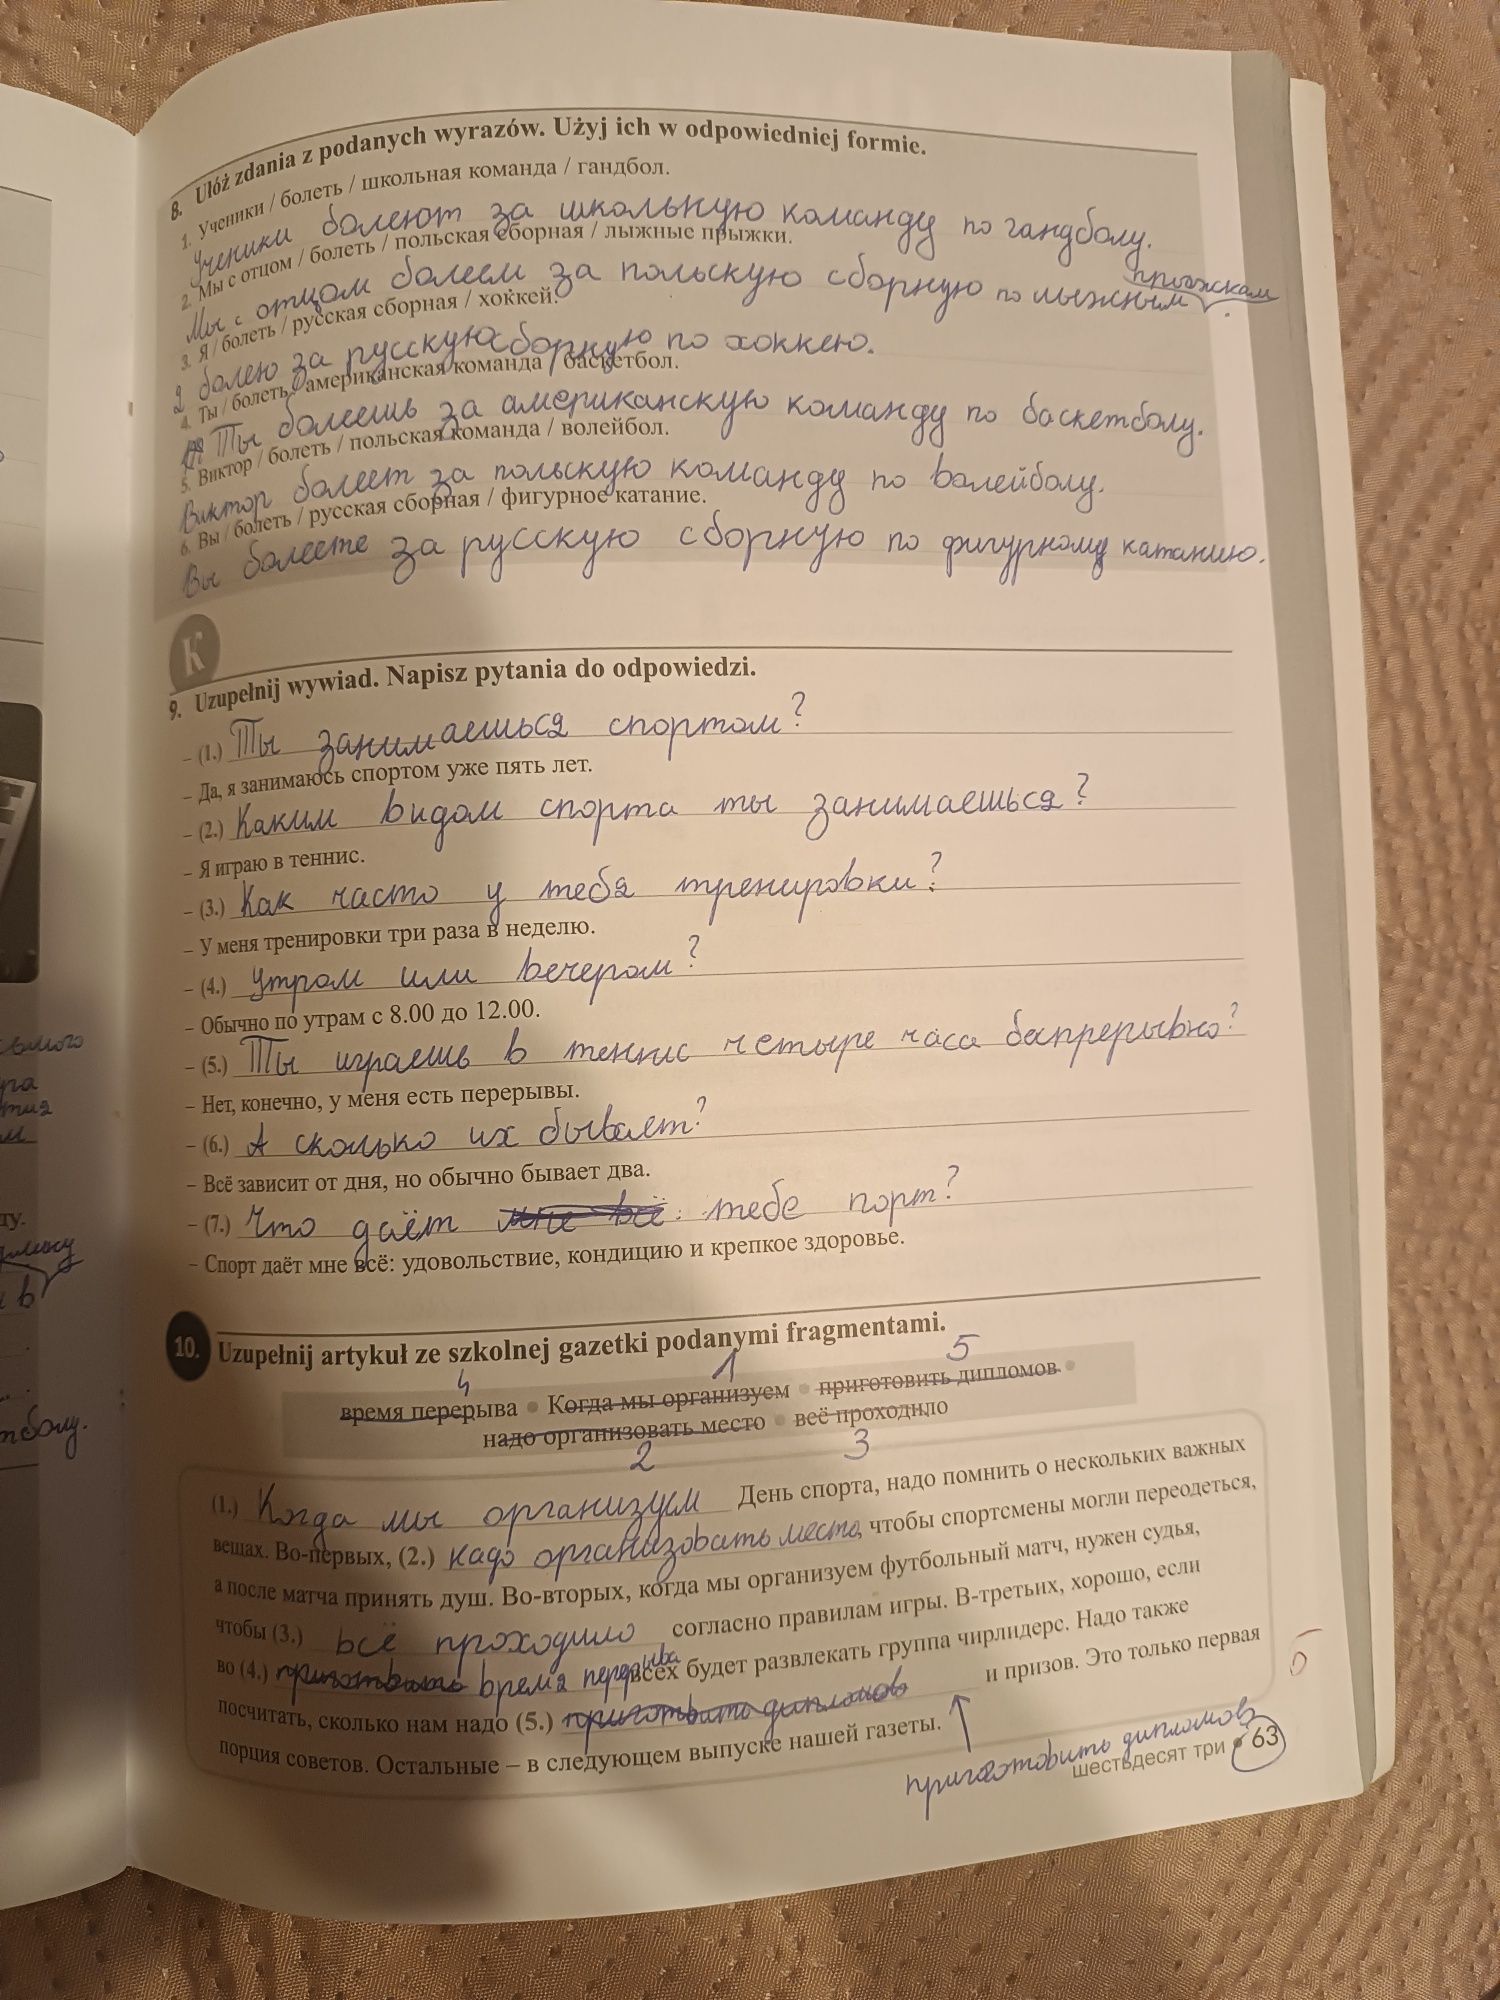 8. Ułóż zdania z podanych wyrazów. Użyj ich w odpowiedniej formie.
1. Ученики / болеть / школьная команда / гандбол.
Ученики болеют за школьную команду по гандболу.
2. Мы с отцом / болеть / польская сборная / лыжные прыжки.
прыжкам
Мы с отцом болеем за польскую сборную по лыжным .
3. Я / болеть / русская сборная / хоккей.
Я болею за русскую сборную по хоккею.
4. Ты / болеть / американская команда / баскетбол.
Ты болеешь за американскую команду по баскетболу.
5. Виктор / болеть / польская команда / волейбол.
Виктор болеет за польскую команду по волейболу.
6. Вы / болеть / русская сборная / фигурное катание.
Вы болеете за русскую сборную по фигурному катанию.
К
9. Uzupełnij wywiad. Napisz pytania do odpowiedzi.
– (1.) Ты занимаешься спортом?
– Да, я занимаюсь спортом уже пять лет.
– (2.) Каким видом спорта ты занимаешься?
– Я играю в теннис.
– (3.) Как часто у тебя тренировки?
– У меня тренировки три раза в неделю.
– (4.) Утром или вечером?
– Обычно по утрам с 8.00 до 12.00.
– (5.) Ты играешь в теннис четыре часа беспрерывно?
– Нет, конечно, у меня есть перерывы.
– (6.) А сколько их бывает?
– Всё зависит от дня, но обычно бывает два.
– (7.) Что даёт мне всё тебе порт?
– Спорт даёт мне всё: удовольствие, кондицию и крепкое здоровье.
10. Uzupełnij artykuł ze szkolnej gazetki podanymi fragmentami.
4 1 5
время перерыва • Когда мы организуем • приготовить дипломов •
надо организовать место • всё проходило
2 3
(1.) Когда мы организуем День спорта, надо помнить о нескольких важных
вещах. Во-первых, (2.) надо организовать место, чтобы спортсмены могли переодеться,
а после матча принять душ. Во-вторых, когда мы организуем футбольный матч, нужен судья,
чтобы (3.) всё проходило согласно правилам игры. В-третьих, хорошо, если
во (4.) приготовить время перерыва всех будет развлекать группа чирлидерс. Надо также
посчитать, сколько нам надо (5.) приготовить дипломов и призов. Это только первая
порция советов. Остальные – в следующем выпуске нашей газеты.
приготовить дипломов
шестьдесят три • 63